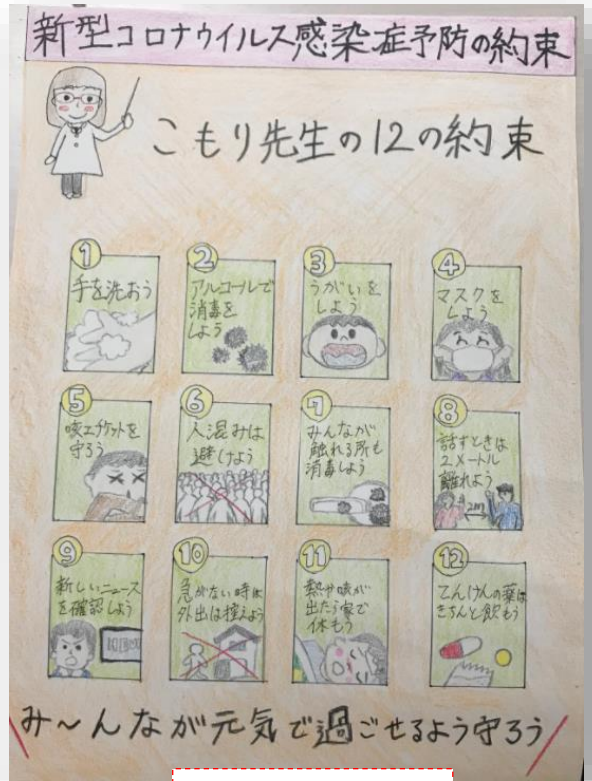 新型コロナウイルス感染症予防の約束
こもり先生の12の約束
1
手を洗おう
2
アルコールで
消毒を
しよう
3
うがいを
しよう
4
マスクを
しよう
5
咳エチケットを
守ろう
6
人混みは
避けよう
7
みんなが
触れる所も
消毒しよう
8
話すときは
2メートル
離れよう
2m
9
新しいニュース
を確認しよう
10
急がない時は
外出は控えよう
11
熱や咳が
出たら家で
休もう
12
てんけんの薬は
きちんと飲もう
み〜んなが元気で過ごせるよう守ろう